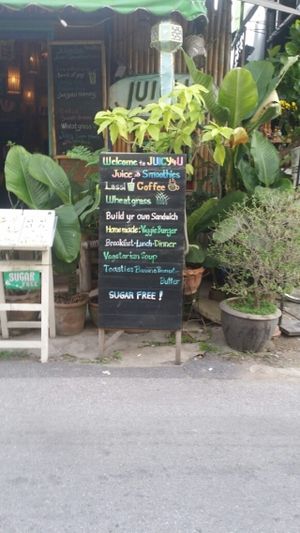 JUIC
Welcome to JUICY4U
Juice & Smoothies
Lassi Coffee
Wheatgrass
Build yr own Sandwich
Homemade: Veggie Burger
Breakfast-Lunch-Dinner
Vegetarian Soup
Toasties Banana Peanut-
Butter
SUGAR FREE!
SUGAR
FREE